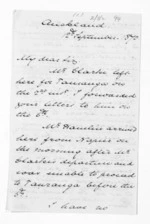 Auckland
2nd September
My dear Sir,
Mr Clarke left
here for Tauranga on
the 2nd inst. I forwarded
your letters to him on
the 6th.
Mr Hamlin arrived
here from Napier on
the morning after Mr
Clarke's departure and
was unable to proceed
to Tauranga before the
I have no